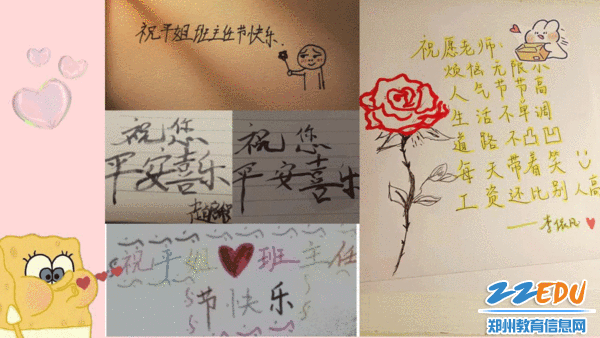 祝平姐班主任节快乐.
祝您
平安喜乐
祝您
平安喜乐
祝平姐班主任
节快乐
祝愿老师:
烦恼无限小
人气节节高
生活不单调
道路不凸凹
每天带着笑
工资还比别人高
ZZEDU
郑州教育信息网